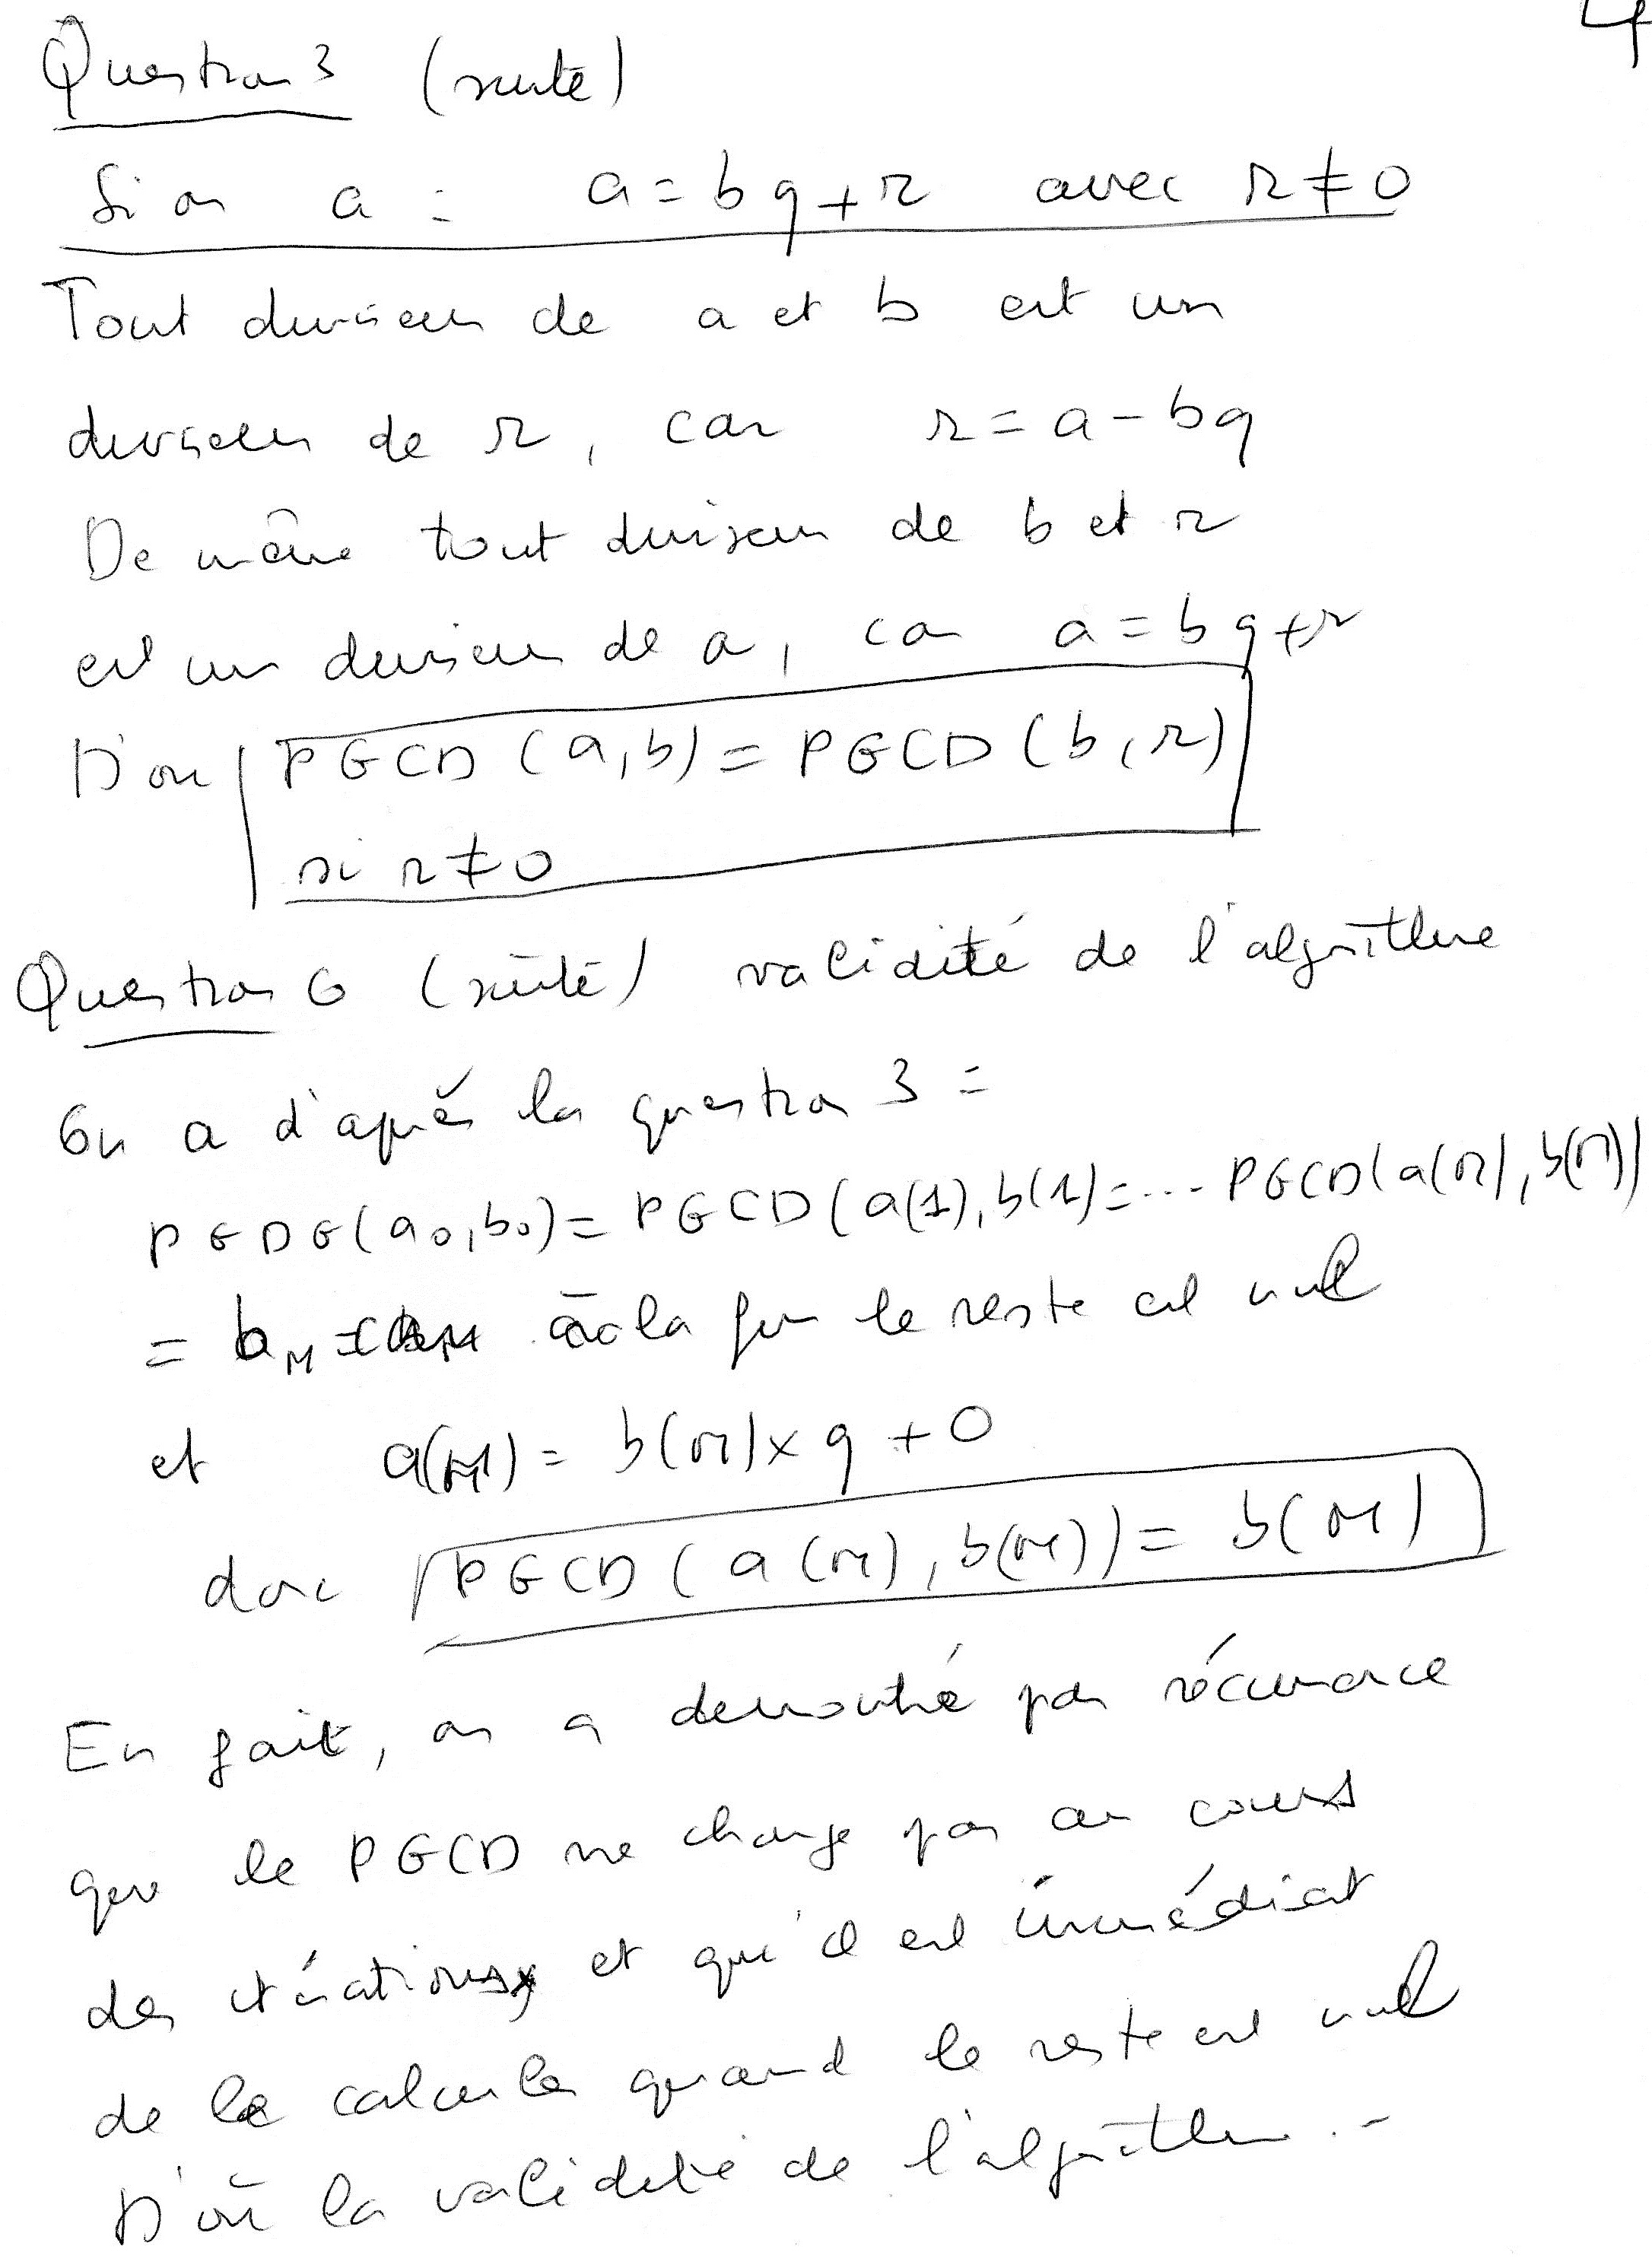 4
Question 3 (suite)
Si on a : a = bq + r avec r ≠ 0
Tout diviseur de a et b est un
diviseur de r, car r = a - bq
De même tout diviseur de b et r
est un diviseur de a, car a = bq + r
D'où PGCD (a, b) = PGCD (b, r)
si r ≠ 0
Question 6 (suite) validité de l'algorithme
On a d'après la question 3 =
PGDG(a0, b0) = PGCD (a(1), b(1) = ... PGCD(a(M), b(M))
= bM à la fin le reste est nul
et a(M) = b(M) × q + 0
donc PGCD (a(M), b(M)) = b(M)
En fait, on a démontré par récurrence
que le PGCD ne change pas au cours
des itérations, et qu'il est immédiat
de le calculer quand le reste est nul
D'où la validité de l'algorithme. -